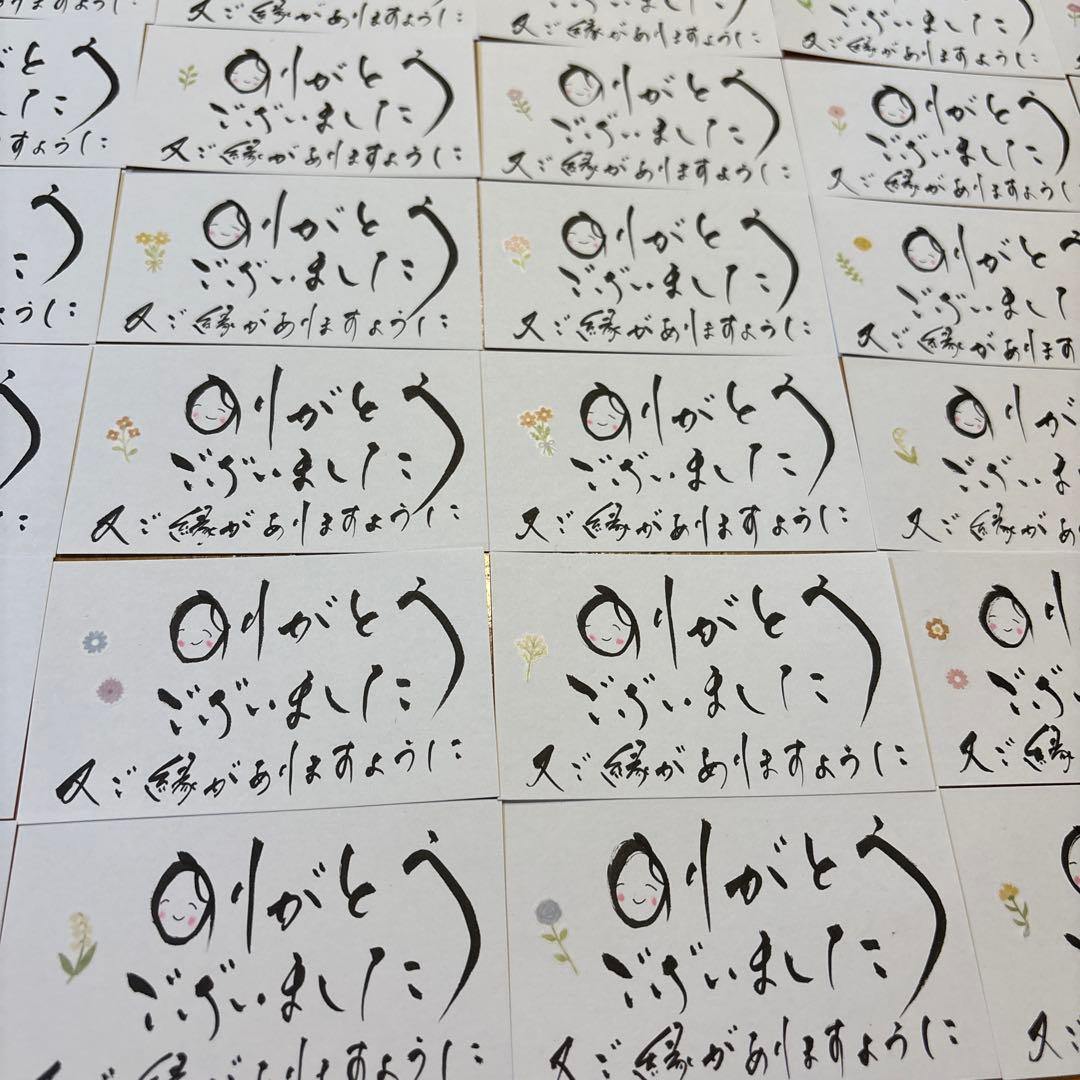 又ご縁がありますように
又ご縁がありますように
ございました
又ご縁がありますように
がとう
すように
ありがとう
ございました
又ご縁がありますように
ありがとう
ございました
又ご縁がありますように
ありがとう
ございました
又ご縁がありますように
う
ように
ありがとう
ございました
又ご縁がありますように
ありがとう
ございました
又ご縁がありますように
ありがと
ございまし
又ご縁があります
ありがとう
ございました
又ご縁がありますように
ありがとう
ございました
又ご縁がありますように
ありが
ございま
又ご縁があり
ありがとう
ございました
又ご縁がありますように
ありがとう
ございました
又ご縁がありますように
あり
ござ
又ご縁
ありがとう
ございました
又ご縁がありますように
ありがとう
ございました
又ご縁がありますように